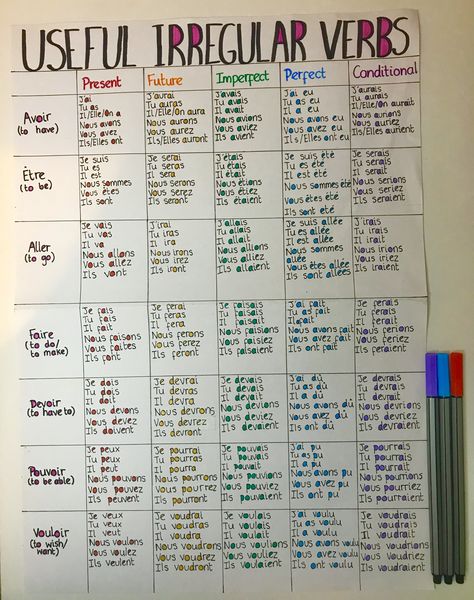 USEFUL IRREGULAR VERBS
Present
Future
Imperfect
Perfect
Conditional
Avoir
(to have)
J'ai
Tu as
Il/Elle/On a
Nous avons
Vous avez
Ils/Elles ont
J'aurai
Tu auras
Il/Elle/On aura
Nous aurons
Vous aurez
Ils/Elles auront
J'avais
Tu avais
Il avait
Nous avions
Vous aviez
Ils avient
J'ai eu
Tu as eu
Il a eu
Nous avons eu
Vous avez eu
Ils/Elles ont eu
J'aurais
Tu aurais
Il/Elle/On aurait
Nous aurions
Vous auriez
Ils/Elles aurient
Être
(to be)
Je suis
Tu es
Il est
Nous sommes
Vous êtes
Ils sont
Je serai
Tu seras
Il sera
Nous serons
Vous serez
Ils seront
J'étais
Tu étais
Il était
Nous étions
Vous étiez
Ils étaient
Je suis été
Tu es été
Il est été
Nous sommes été
Vous êtes été
Ils sont été
Je serais
Tu serais
Il serait
Nous serions
Vous seriez
Ils seraient
Aller
(to go)
Je vais
Tu vas
Il va
Nous allons
Vous allez
Ils vont
J'irai
Tu iras
Il ira
Nous irons
Vous irez
Ils iront
J'allais
Tu allais
Il allait
Nous allions
Vous alliez
Ils allaient
Je suis allée
Tu es allée
Il est allé
Nous sommes
allée
Vous êtes allée
Ils sont allées
J'irais
Tu irais
Il irait
Nous irions
Vous iriez
Ils iraient
Faire
(to do/
to make)
Je fais
Tu fais
Il fait
Nous faisons
Vous faites
Ils font
Je ferai
Tu feras
Il fera
Nous ferons
Vous ferez
Ils feront
Je faisais
Tu faisais
Il faisait
Nous faisions
Vous faisiez
Ils faisaient
J'ai fait
Tu as fait
Il a fait
Nous avons fait
Vous avez fait
Ils ont fait
Je ferais
Tu ferais
Il ferait
Nous ferions
Vous feriez
Ils feraient
Devoir
(to have to)
Je dois
Tu dois
Il doit
Nous devons
Vous devez
Ils doivent
Je devrai
Tu devras
Il devra
Nous devrons
Vous devrez
Ils devront
Je devais
Tu devais
Il devait
Nous devions
Vous deviez
Ils devaient
J'ai dû
Tu as dû
Il a dû
Nous avons dû
Vous avez dû
Ils ont dû
Je devrais
Tu devrais
Il devrait
Nous devrions
Vous devriez
Ils devraient
Pouvoir
(to be able)
Je peux
Tu peux
Il peut
Nous pouvons
Vous pouvez
Ils peuvent
Je pourrai
Tu pourras
Il pourra
Nous pourrons
Vous pourrez
Ils pourront
Je pouvais
Tu pouvais
Il pouvait
Nous pouvions
Vous pouviez
Ils pouvaient
J'ai pu
Tu as pu
Il a pu
Nous avons pu
Vous avez pu
Ils ont pu
Je pourrais
Tu pourrais
Il pourrait
Nous pourrions
Vous pourriez
Ils pourraient
Vouloir
(to wish/
want)
Je veux
Tu veux
Il veut
Nous voulons
Vous voulez
Ils veulent
Je voudrai
Tu voudras
Il voudra
Nous voudrons
Vous voudrez
Ils voudront
Je voulais
Tu voulais
Il voulait
Nous voulions
Vous vouliez
Ils voulaient
J'ai voulu
Tu as voulu
Il a voulu
Nous avons voulu
Vous avez voulu
Ils ont voulu
Je voudrais
Tu voudrais
Il voudrait
Nous voudrions
Vous voudriez
Ils voudraient